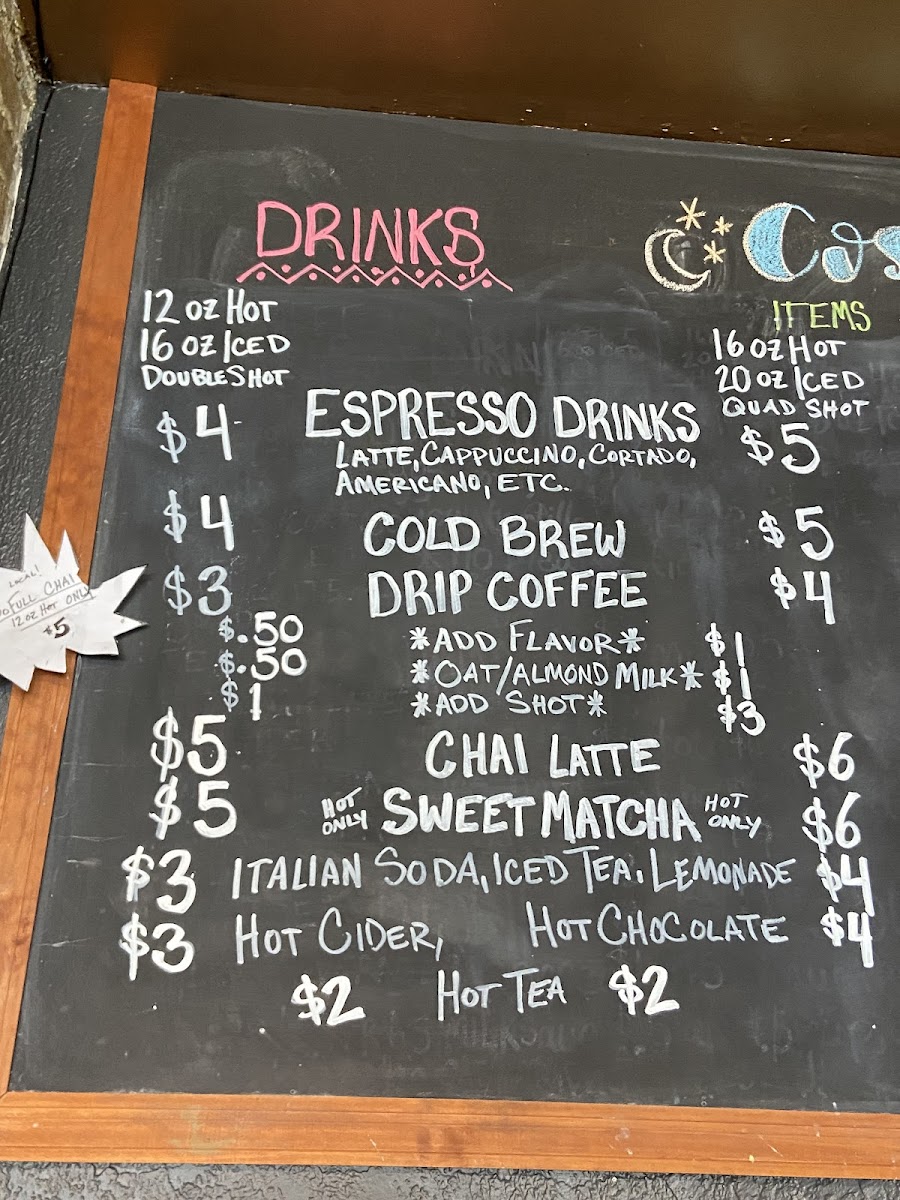 DRINKS
ITEMS
12 OZ HOT
16 OZ ICED
DOUBLE SHOT
16 OZ HOT
20 OZ ICED
QUAD SHOT
$4 ESPRESSO DRINKS $5
LATTE, CAPPUCCINO, CORTADO,
AMERICANO, ETC.
$4 COLD BREW $5
$3 DRIP COFFEE $4
$.50 *ADD FLAVOR* $1
$.50 *OAT/ALMOND MILK* $1
$1 *ADD SHOT* $3
$5 CHAI LATTE $6
$5 HOT ONLY SWEET MATCHA HOT ONLY $6
$3 ITALIAN SODA, ICED TEA, LEMONADE $4
$3 HOT CIDER, HOT CHOCOLATE $4
$2 HOT TEA $2
LOCAL!
FULL CHAI
12 OZ HOT ONLY
$5